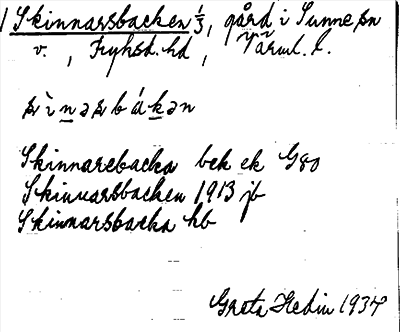 1 Skinnarsbacken 1/3, gård i Sunne sn
v., Fryksd. hd, Värml. l.
Skinnarebacka bek ek G80
Skinnarsbacken 1913 jb
Skinnarsbacka hb
Greta Hedin 1934